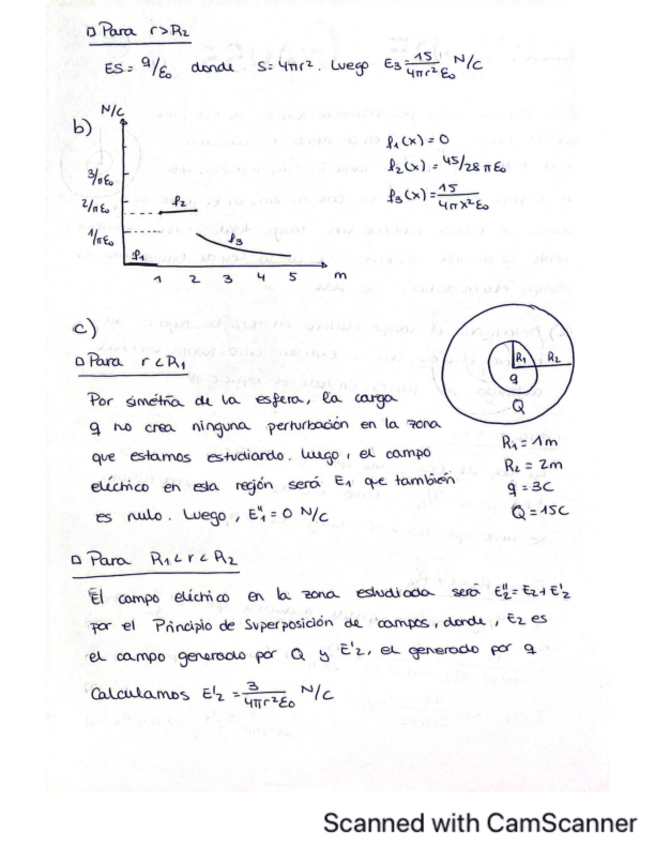 □ Para r>R2
ES = q/ε0 donde S=4πr². Luego E3 = 15/4πr²ε0 N/C
b)
N/C
3/πε0
2/πε0
1/πε0
f1
f2
f3
1 2 3 4 5 m
f1(x) = 0
f2(x) = 45/28πε0
f3(x) = 15/4πx²ε0
c)
□ Para r<R1
Por simetría de la esfera, la carga
q no crea ninguna perturbación en la zona
que estamos estudiando. Luego, el campo
eléctrico en esta región será E1 que también
es nulo. Luego, E"1 = 0 N/C
R1 R2
q
Q
R1 = 1m
R2 = 2m
q = 3C
Q = 15C
□ Para R1<r<R2
El campo eléctrico en la zona estudiada será E"2 = E2 + E'2
por el Principio de Superposición de campos, donde, E2 es
el campo generado por Q y E'2, el generado por q
Calculamos E'2 = 3/4πr²ε0 N/C
Scanned with CamScanner